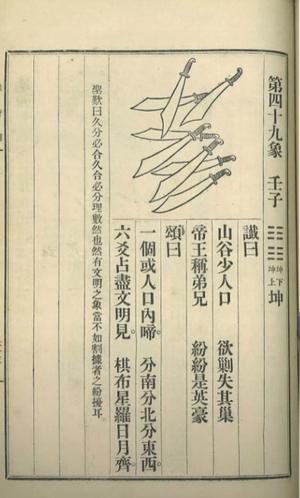 第四十九象 壬子
坤下 坤上 坤
讖曰
山谷少人口 欲剿失其巢
帝王稱弟兄 紛紛是英豪
頌曰
一個或人口內啼。 分南分北分東西。
六爻占盡文明見。 棋布星羅日月齊。
聖歎曰久分必合久合必分理數然也然有文明之象當不如割據者之紛擾耳